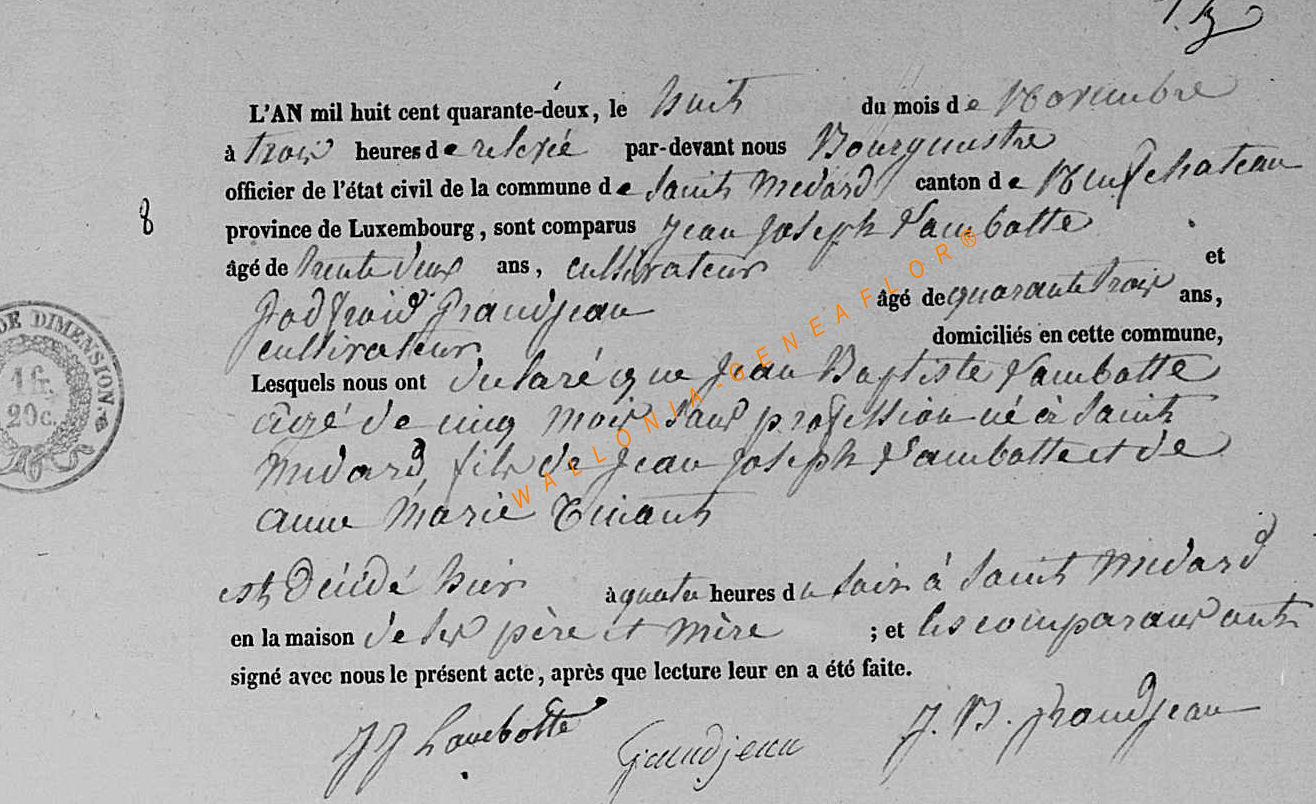 L'AN mil huit cent quarante-deux, le huit du mois de Novembre
à trois heures de relevée par-devant nous Bourgmestre
officier de l'état civil de la commune de Saint Medard canton de Neufchateau
8
province de Luxembourg, sont comparus Jean Joseph Lambotte
âgé de trente deux ans, cultivateur et
Godfroid Grandjean âgé de quarante trois ans,
cultivateur, domiciliés en cette commune,
Lesquels nous ont declaré que Jean Baptiste Lambotte
agé de cinq mois sans profession né à Saint
Medard, fils de Jean Joseph Lambotte et de
anne Marie Tinant
est Décédé hier à quatre heures du soir à Saint Medard
en la maison de ses père et mère ; et les comparans ont
signé avec nous le présent acte, après que lecture leur en a été faite.
JJ Lambotte Grandjean J. B. Grandjean
DE DIMENSION.
1 fr.
20c.
WALLONIA-GENEAFLOR®